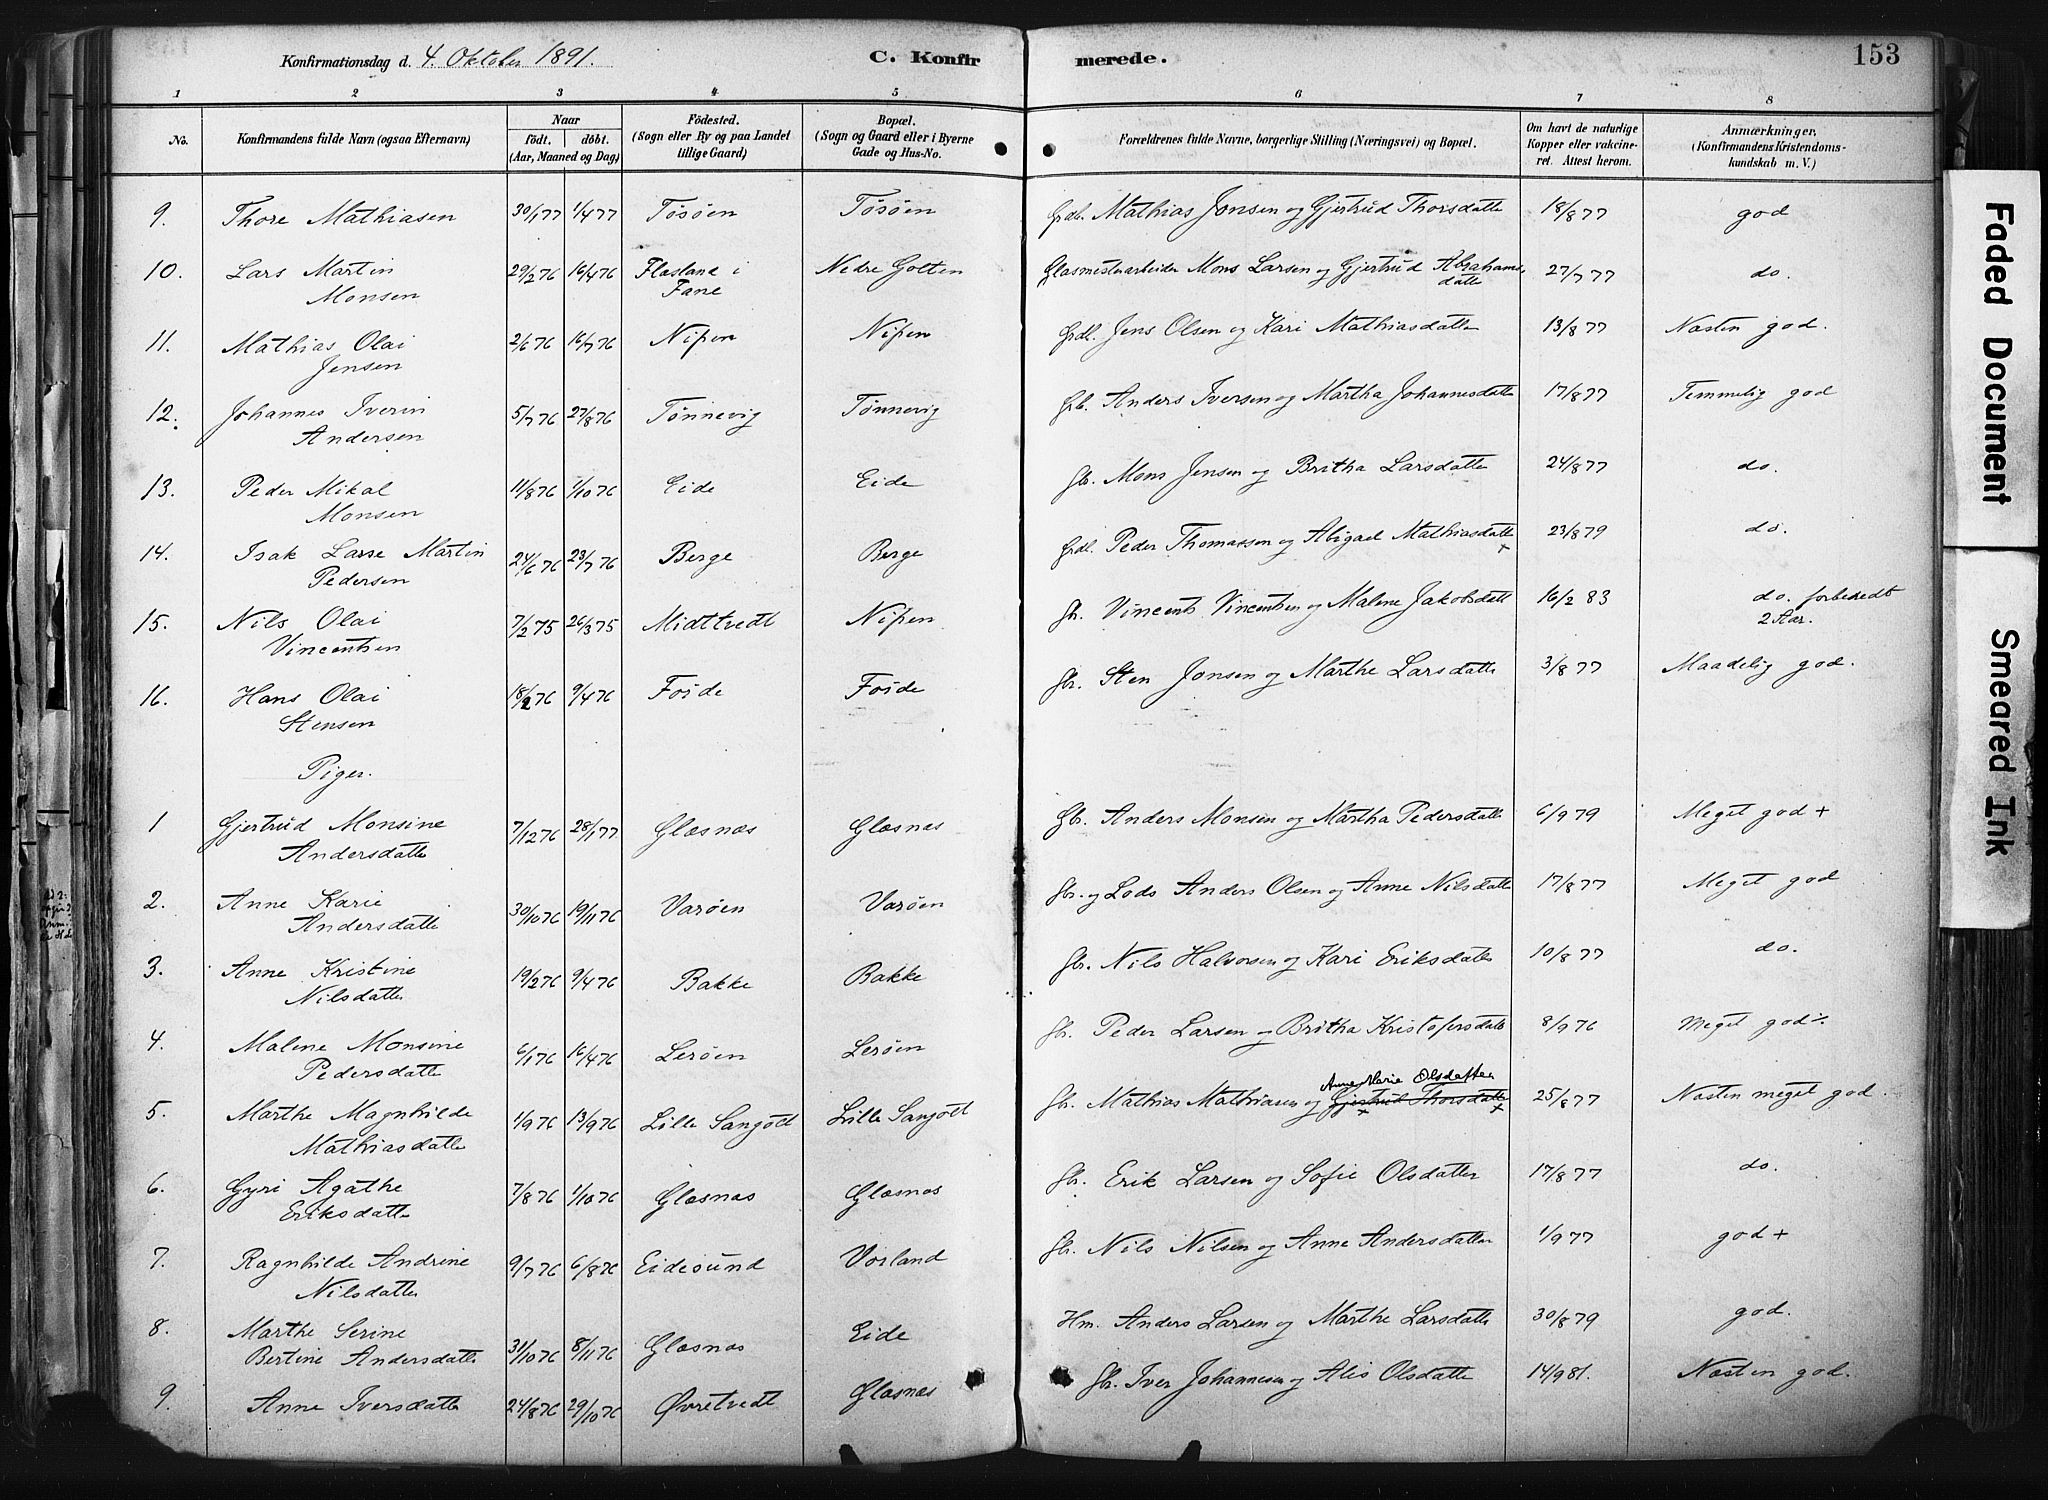 Konfirmationsdag d. 4. Oktober 1891. C. Konfirmerede. 153
1 2 3 4 5 6 7 8
No. Konfirmandens fulde Navn (ogsaa Efternavn) Naar födt. döbt. (Aar, Maaned og Dag) Födested. (Sogn eller By og paa Landet tillige Gaard) Bopæl. (Sogn og Gaard eller i Byerne Gade og Hus-No. Forældrenes fulde Navne, borgerlige Stilling (Næringsvei) og Bopæl. Om havt de naturlige Kopper eller vakcineret. Attest herom. Anmærkninger. (Konfirmandens Kristendomskundskab m. V.)
9. Thore Mathiasen 30/1 77 1/4 77 Tösöen Tösöen Grdl. Mathias Jonsen og Gjertrud Thorsdatter 18/8 77 god
10. Lars Martin Monsen 29/2 76 16/4 76 Flasland i Fane Nedre Golten Glasmesterarbeider Mons Larsen og Gjertrud Abrahamsdatter 27/7 77 do.
11. Mathias Olai Jensen 2/6 76 16/7 76 Nipen Nipen Grdl. Jens Olsen og Kari Mathiasdatter 13/8 77 Næsten god.
12. Johannes Iverin Andersen 5/7 76 27/8 76 Tönnevig Tönnevig Gb. Anders Iversen og Martha Johannesdatter 17/8 77 Temmelig god
13. Peder Mikal Monsen 11/8 76 1/10 76 Eide Eide Gb. Mons Jensen og Britha Larsdatter 24/8 77 do.
14. Isak Lasse Martin Pedersen 24/6 76 23/7 76 Berge Berge Grdl. Peder Thomassen og Abigael Mathiasdatter + 23/8 79 do.
15. Nils Olai Vincentsen 7/2 75 26/3 75 Midttvedt Nipen Gb. Vincents Vincentsen og Malene Jakobsdatt 16/2 83 do. forberedt 2 Aar.
16. Hans Olai Stensen 18/2 76 9/4 76 Foside Foside Gb. Sten Jonsen og Marthe Larsdatter 3/8 77 Maadelig god.
Piger.
1 Gjertrud Monsine Andersdatter 7/12 76 28/1 77 Glæsnæs Glæsnæs Gb. Anders Monsen og Martha Pedersdatter 6/9 79 Meget god +
2. Anne Karie Andersdatter 30/10 76 19/11 76 Varöen Varöen Gb. og Lods Anders Olsen og Anne Nilsdatter 17/8 77 Meget god
3. Anne Kristine Nilsdatter 19/2 76 9/4 76 Bakke Bakke Gb. Nils Halvorsen og Kari Eriksdatter 10/8 77 do.
4. Malene Monsine Pedersdatter 6/1 76 16/4 76 Leröen Leröen Gb. Peder Larsen og Britha Kristofersdatter 8/9 76 Meget god ÷
5. Marthe Magnhilde Mathiasdatter 1/9 76 13/9 76 Lille Sangölt Lille Sangölt Gb. Mathias Mathiasen og Gjertrud Thorsdatter Anne Marie Olsdatter 25/8 77 Næsten meget god.
6. Gyri Agathe Eriksdatter 7/8 76 1/10 76 Glæsnæs Glæsnæs Gb. Erik Larsen og Sofie Olsdatter 17/8 77 do.
7. Ragnhilde Andrine Nilsdatter 9/7 76 6/8 76 Eidesund Vorland Gb. Nils Nilsen og Anne Andersdatter 1/9 77 god +
8. Marthe Serine Bertine Andersdatter 31/10 76 8/11 76 Glæsnæs Eide Hm. Anders Larsen og Marthe Larsdatter 30/8 79 god.
9. Anne Iversdatter 24/8 76 29/10 76 Øvretvedt Glæsnæs Gb. Iver Johannesen og Alis Olsdatter 14/9 81. Næsten god.
Faded Document
Smeared Ink